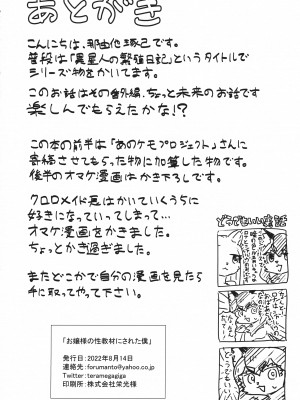 あとがき
こんにちは、那由他琢己です。
普段は「異星人の繁殖日記」というタイトルで
シリーズ物をかいてます。
このお話はその番外編、ちょっと未来のお話です
楽しんでもらえたかな!?
この本の前半は「あのケモプロジェクト」さんに
寄稿させてもらった物に加筆した物です。
後半のオマケ漫画はかき下ろしです。
クロロメイド君はかいていくうちに
好きになっていってしまって…
オマケ漫画をかきました。
ちょっとかき過ぎました。
またどこかで自分の漫画を見たら
手に取ってやって下さい。
「お嬢様の性教材にされた僕」
発行日:2022年8月14日
連絡先:forumanto@yahoo.co.jp
Twitter:teramegagiga
印刷所:株式会社栄光様
どうでもいい実話